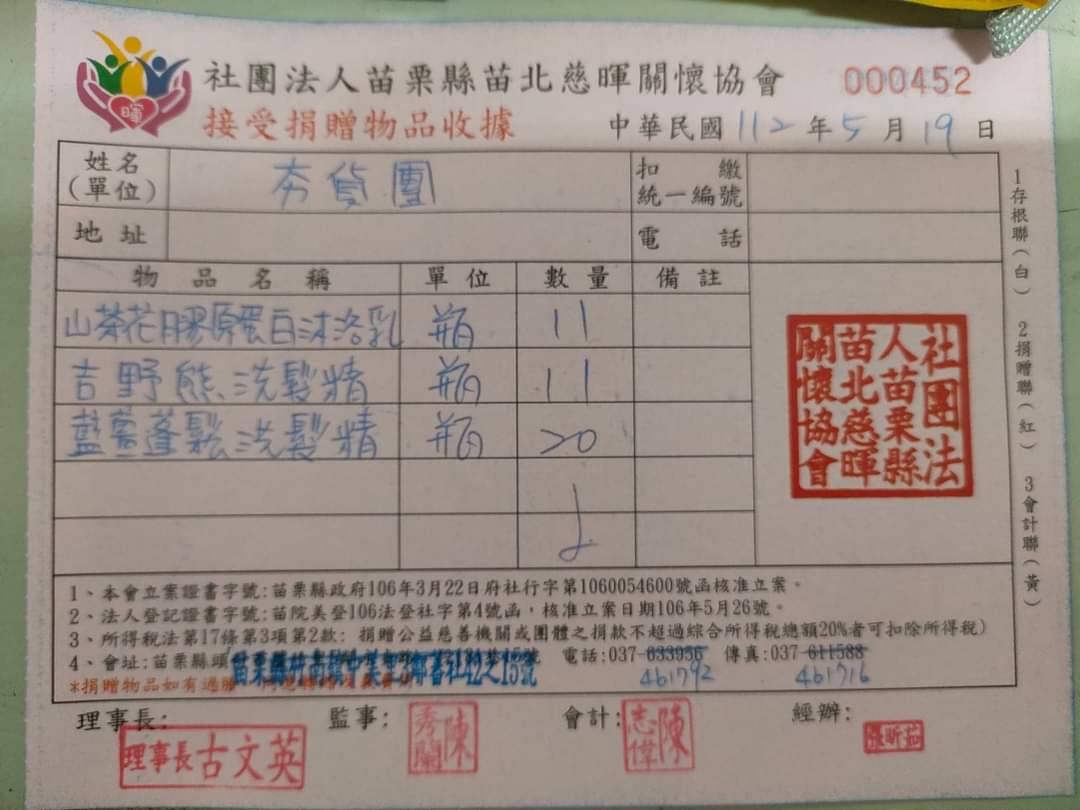 社團法人苗栗縣苗北慈暉關懷協會 000452
接受捐贈物品收據 中華民國 112 年 5 月 19 日
姓名(單位) 夯貨團 扣繳統一編號
地址 電話
物品名稱 單位 數量 備註
山茶花膠原蛋白沐浴乳 瓶 11
吉野熊洗髮精 瓶 11
藍莓蓬鬆洗髮精 瓶 20
社團法人苗栗縣苗北慈暉關懷協會
1存根聯(白) 2捐贈聯(紅) 3會計聯(黃)
1、本會立案證書字號:苗栗縣政府106年3月22日府社行字第1060054600號函核准立案。
2、法人登記證書字號:苗院美登106法登社字第4號函,核准立案日期106年5月26號。
3、所得稅法第17條第3項第2款: 捐贈公益慈善機關或團體之捐款不超過綜合所得稅總額20%者可扣除所得稅)
4、會址:苗栗縣頭 苗栗縣竹南鎮中美 鄰番社42之15號 電話:037-633956 傳真:037-611588
461792 461716
*捐贈物品如有過
理事長: 監事: 會計: 經辦:
理事長古文英 陳秀蘭 陳志偉 張昕茹